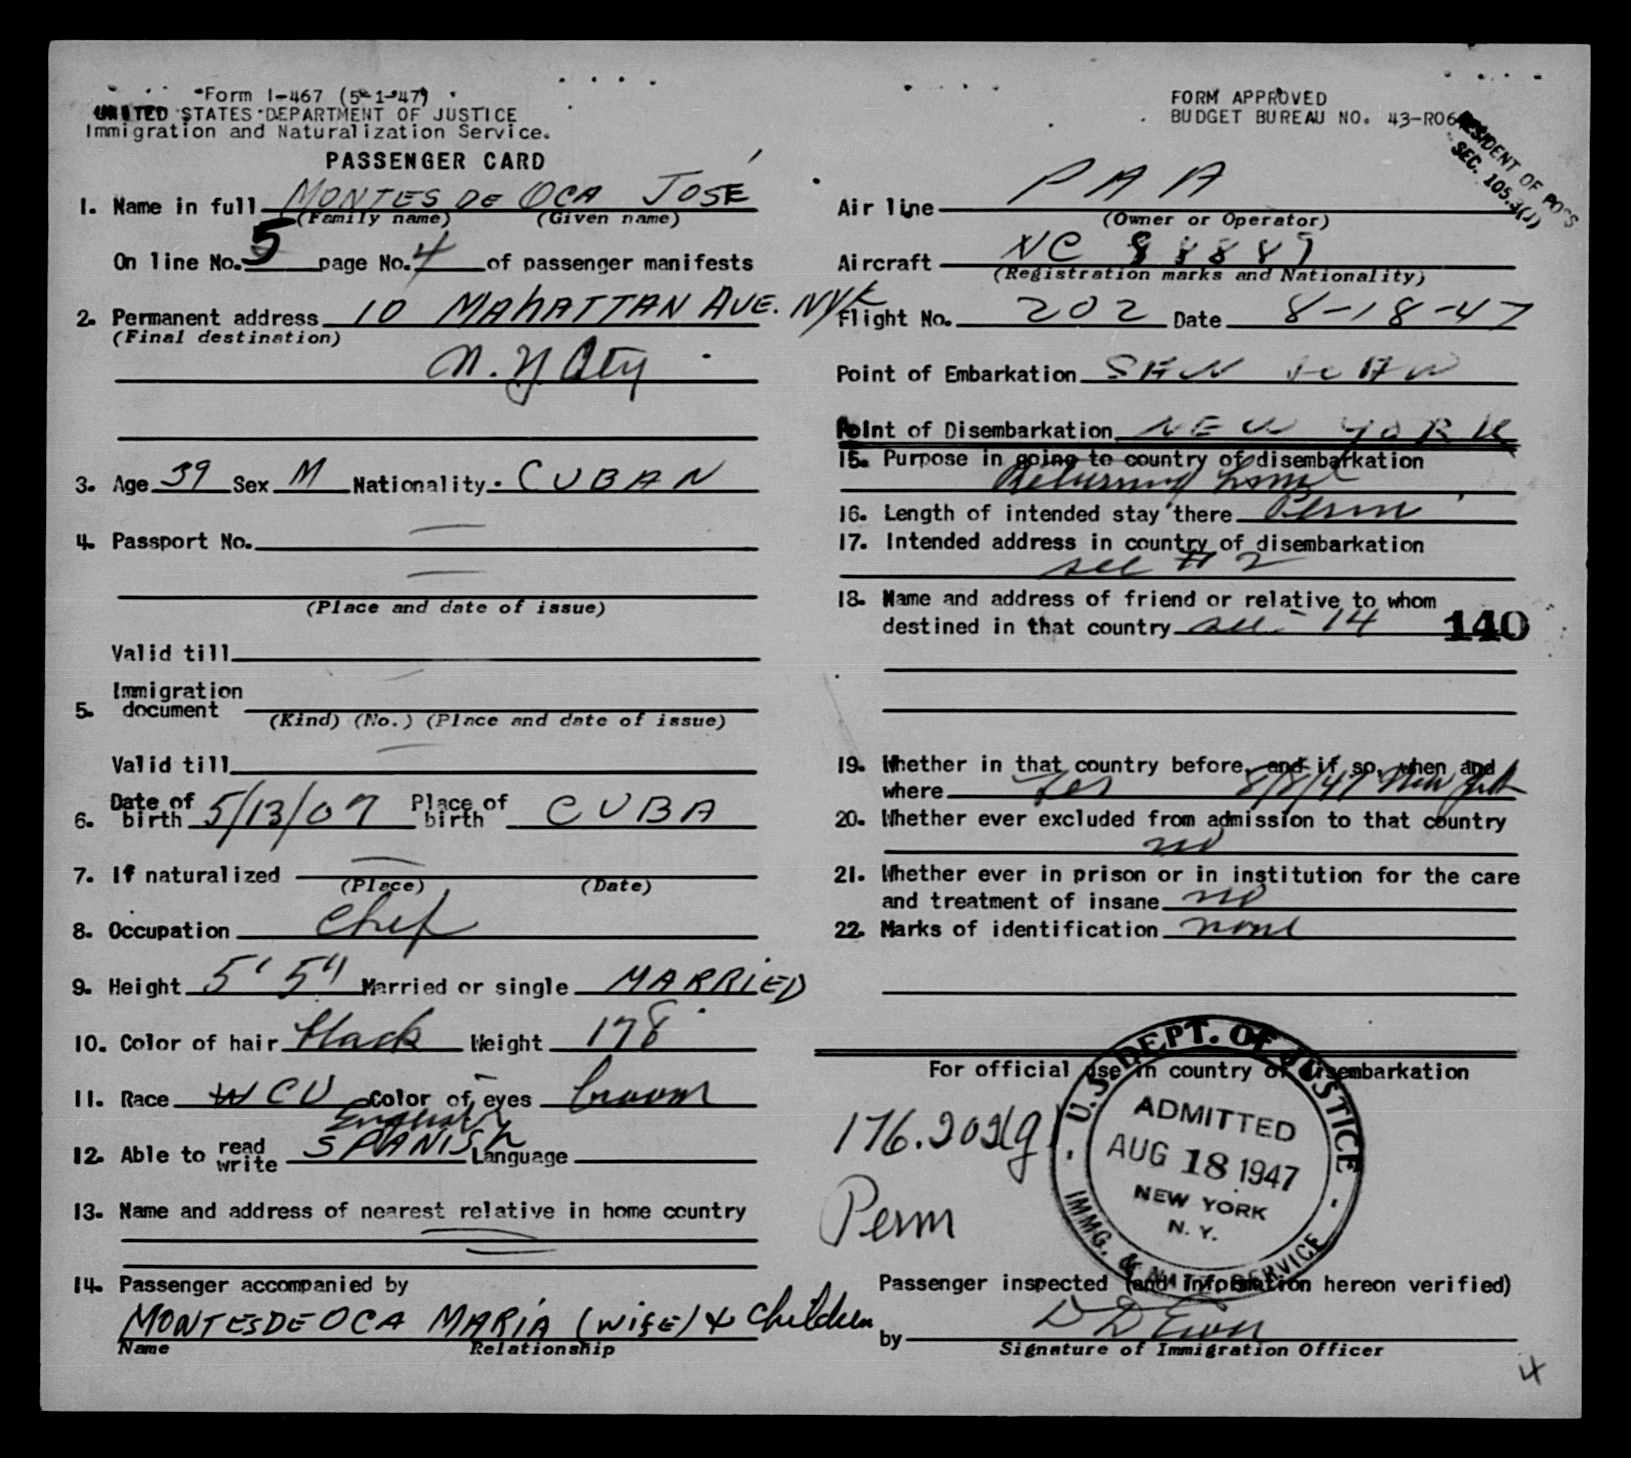 Form I-467 (5-1-47)
UNITED STATES DEPARTMENT OF JUSTICE
Immigration and Naturalization Service.
PASSENGER CARD
1. Name in full MONTES DE OCA JOSÉ
(Family name) (Given name)
On line No. 5 page No. 4 of passenger manifests
2. Permanent address 10 MAhATTAN AVE. NYK
(Final destination)
N.Y City
3. Age 39 Sex M Nationality CUBAN
4. Passport No. —
—
(Place and date of issue)
Valid till
5. Immigration document
(Kind) (No.) (Place and date of issue)
Valid till —
6. Date of birth 5/13/07 Place of birth CUBA
7. If naturalized —
(Place) (Date)
8. Occupation chef
9. Height 5' 5" Married or single MARRIED
10. Color of hair black Weight 178
11. Race W CU Color of eyes brown
English
12. Able to read write SPANISh Language
13. Name and address of nearest relative in home country
—
14. Passenger accompanied by
MONTESDEOCA MARIA (wife) & children
Name Relationship
FORM APPROVED
BUDGET BUREAU NO. 43-RO6
RESIDENT OF POSS
SEC. 105.3(J)
Air line PAA
(Owner or Operator)
Aircraft NC 88889
(Registration marks and Nationality)
Flight No. 202 Date 8-18-47
Point of Embarkation SAN JUAN
Point of Disembarkation NEW YORK
15. Purpose in going to country of disembarkation
Returning home
16. Length of intended stay there Perm
17. Intended address in country of disembarkation
see # 2
18. Name and address of friend or relative to whom
destined in that country see - 14 140
19. Whether in that country before, and if so, when and
where Yes 8/8/47 New York
20. Whether ever excluded from admission to that country
no
21. Whether ever in prison or in institution for the care
and treatment of insane no
22. Marks of identification none
For official use in country of disembarkation
176.202
Perm
U.S. DEPT. OF JUSTICE
ADMITTED
AUG 18 1947
NEW YORK
N. Y.
IMMG. & NATZ. SERVICE
Passenger inspected (and information hereon verified)
by
Signature of Immigration Officer